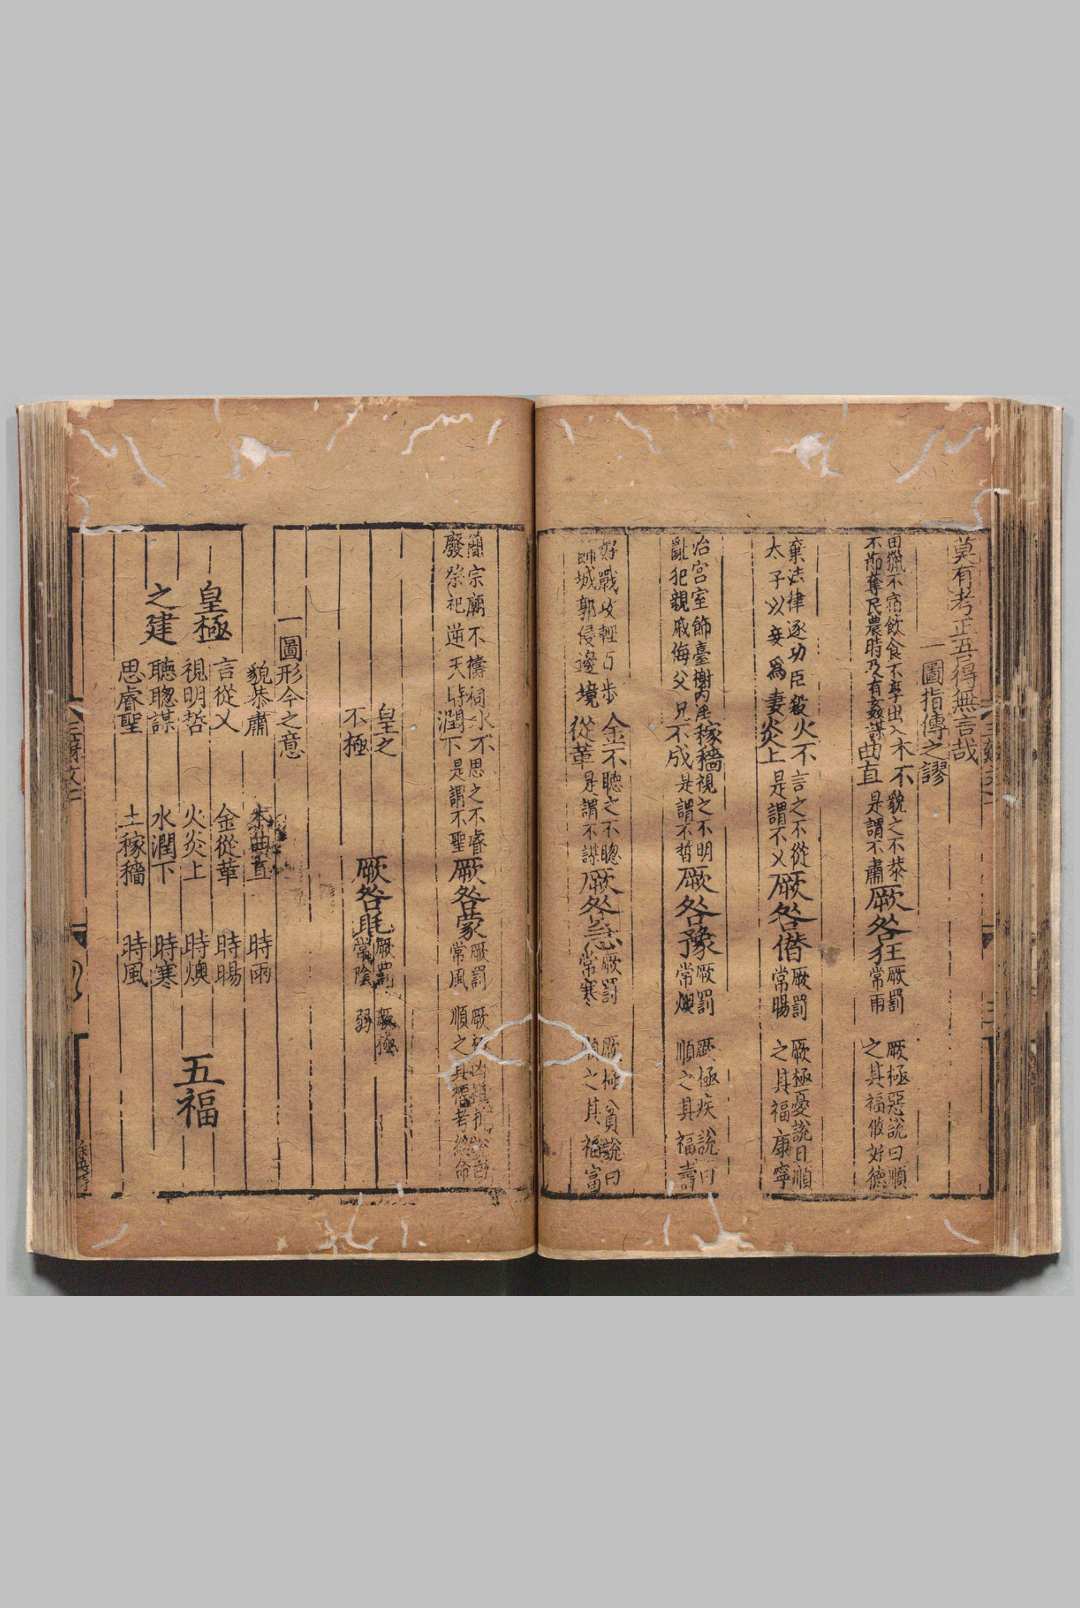 莫有考正吾得無言哉
一圖指傳之謬
田獵不宿飲食不享出入
不節奪民農時乃有姦謀
木不
曲直
貌之不恭
是謂不肅
厥咎狂
厥罰
常雨
厥極惡說曰順
之其福攸好德
棄法律逐功臣殺
太子以妾為妻
火不
炎上
言之不從
是謂不乂
厥咎僭
厥罰
常暘
厥極憂說曰順
之其福康寧
治宮室飾臺榭內淫
亂犯親戚侮父兄
稼穡
不成
視之不明
是謂不哲
厥咎豫
厥罰
常燠
厥極疾說曰
順之其福壽
好戰攻輕百步
飾城郭侵邊境
金不
從革
聽之不聰
是謂不謀
厥咎急
厥罰
常寒
厥極貧說曰
順之其福富
簡宗廟不禱祠
廢祭祀逆天時
水不
潤下
思之不睿
是謂不聖
厥咎蒙
厥罰
常風
順之其福考終命
皇之
不極
厥咎眊
厥罰
常陰
厥極
弱
一圖形今之意
貌恭肅 木曲直 時雨
言從乂 金從革 時暘
皇極
之建
視明哲 火炎上 時燠
聽聰謀 水潤下 時寒
思睿聖 土稼穡 時風
五福